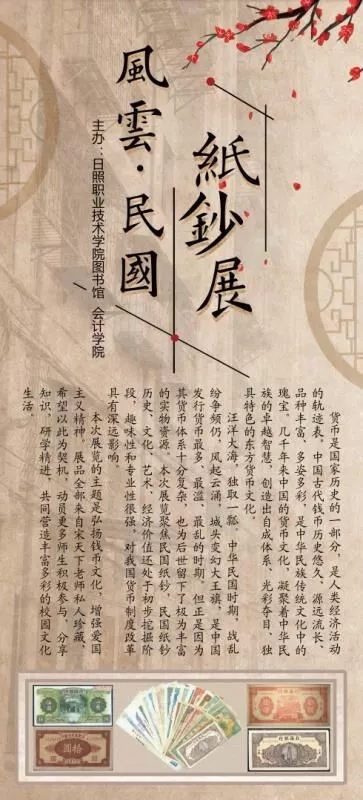 風雲·民國
紙鈔展
主办：日照职业技术学院图书馆 会计学院
货币是国家历史的一部分，是人类经济活动
的轨迹表，中国古代钱币历史悠久、源远流长、
品种丰富，多姿多彩，是中华民族传统文化中的
瑰宝，几千年来中国的货币文化，凝聚着中华民
族的卓越智慧，创造出自成体系、光彩夺目、独
具特色的东方货币文化。
汪洋大海，独取一瓢，中华民国时期，战乱
纷争频仍，风起云涌，城头变幻大王旗，是中国
发行货币最多、最滥、最乱的时期，但正是因为
其货币体系十分复杂，也为后世留下了极为丰富
的实物资源，本次展览聚焦民国纸钞，民国纸钞
历史、文化、艺术、经济价值还处于初步挖掘阶
段，趣味性和专业性很强，对我国货币制度改革
具有深远影响。
本次展览的主题是弘扬钱币文化，增强爱国
主义精神，展品全部来自宋天下老师私人珍藏，
希望以此为契机，动员更多师生积极参与，分享
知识，研学精进，共同营造丰富多彩的校园文化
生活。